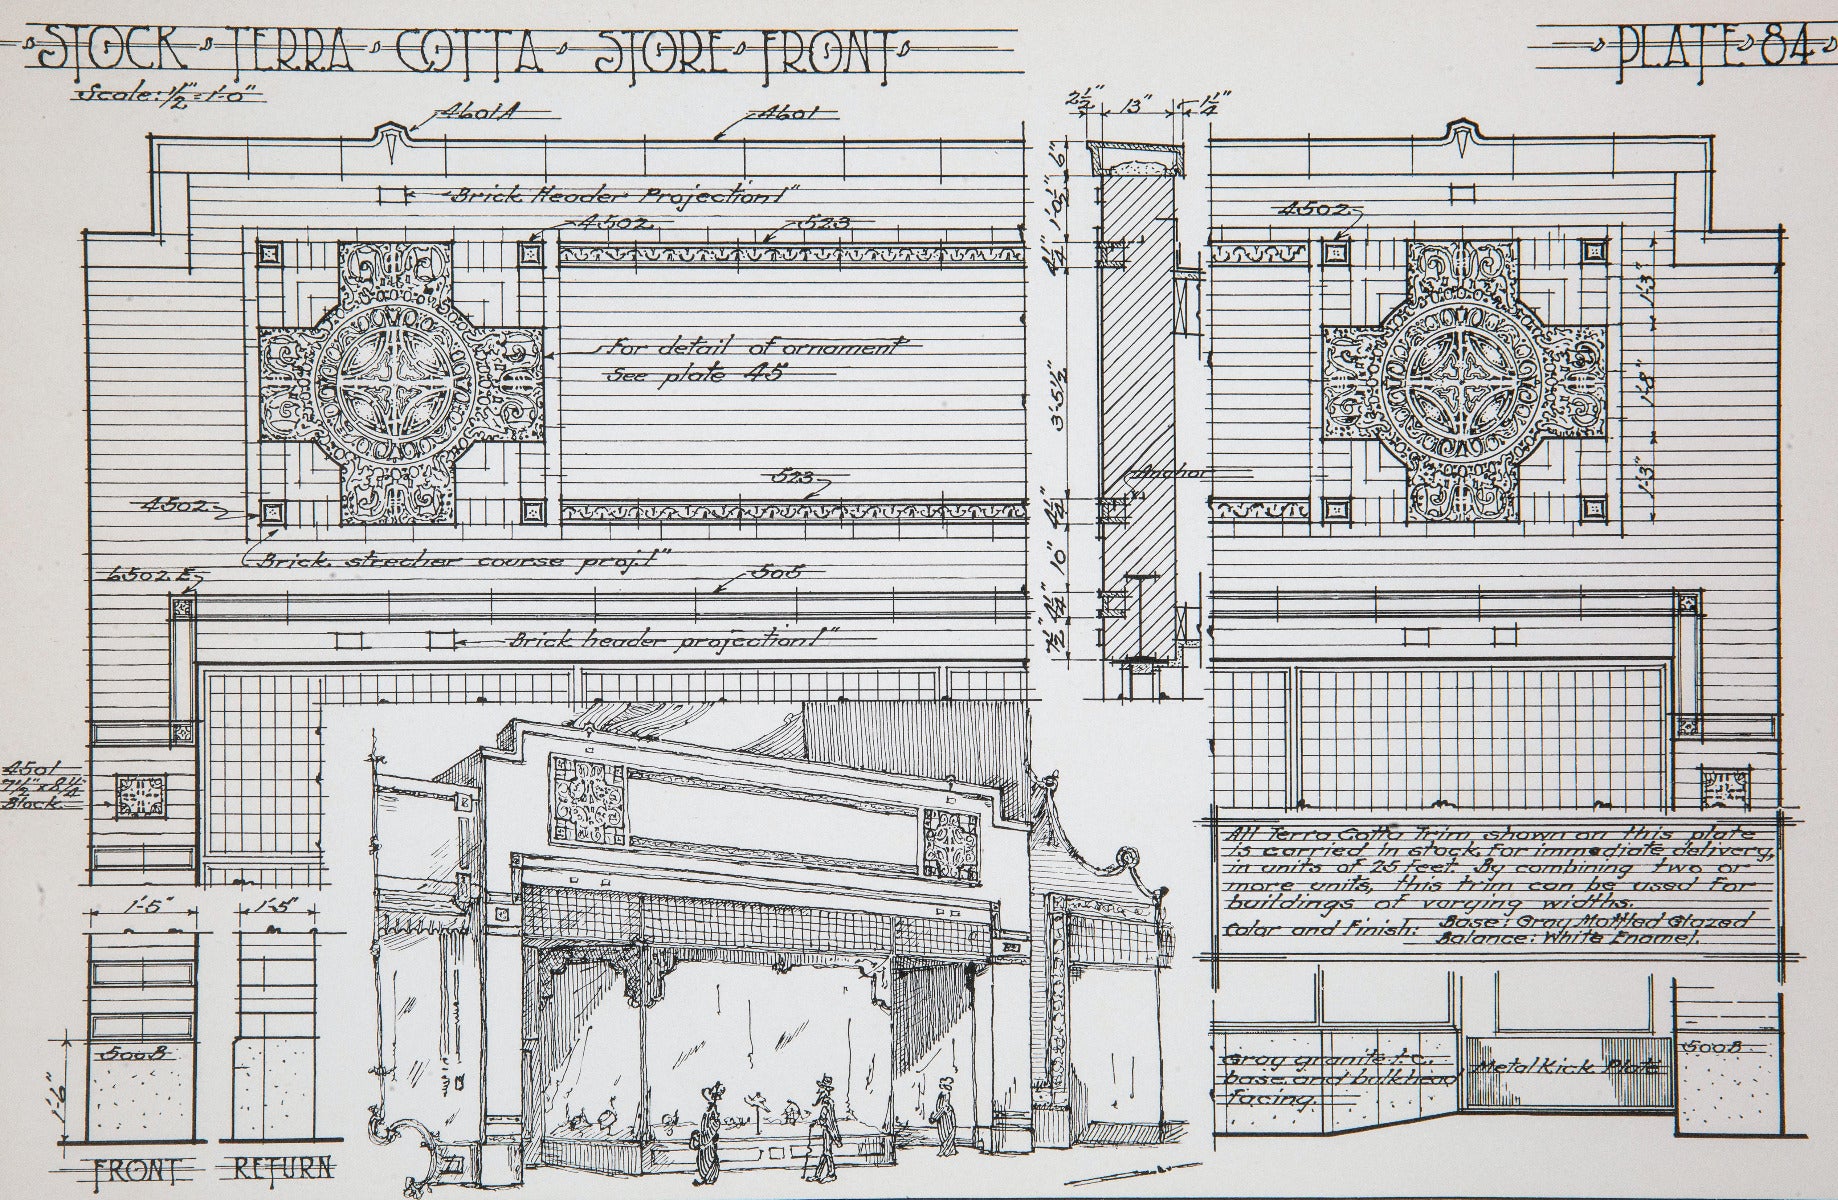 STOCK TERRA COTTA STORE FRONT
PLATE 84
Scale: 1/2" = 1'-0"
4601A
4601
2 1/2"
13"
1 1/4"
6"
Brick Header Projection 1"
1'-0 1/2"
4502
523
4502
4 1/4"
1'-3"
For detail of ornament
See plate 45
3'-5 1/2"
1'-8"
523
Anchor
1'-3"
4502
4 1/2"
Brick strecher course proj. 1"
10"
6502 E
505
4 1/4"
Brick header projection 1"
7 1/2"
4501
7 1/2" x 8 1/4"
Block
All Terra Cotta Trim shown on this plate
is carried in stock, for immediate delivery,
in units of 25 feet. By combining two or
more units, this trim can be used for
buildings of varying widths.
Color and Finish: Base: Gray Mottled Glazed
Balance: White Enamel.
1'-5"
1'-5"
500B
1'-6"
Gray granite t.c.
base and bulkhead
facing.
Metal Kick Plate
500B
FRONT
RETURN